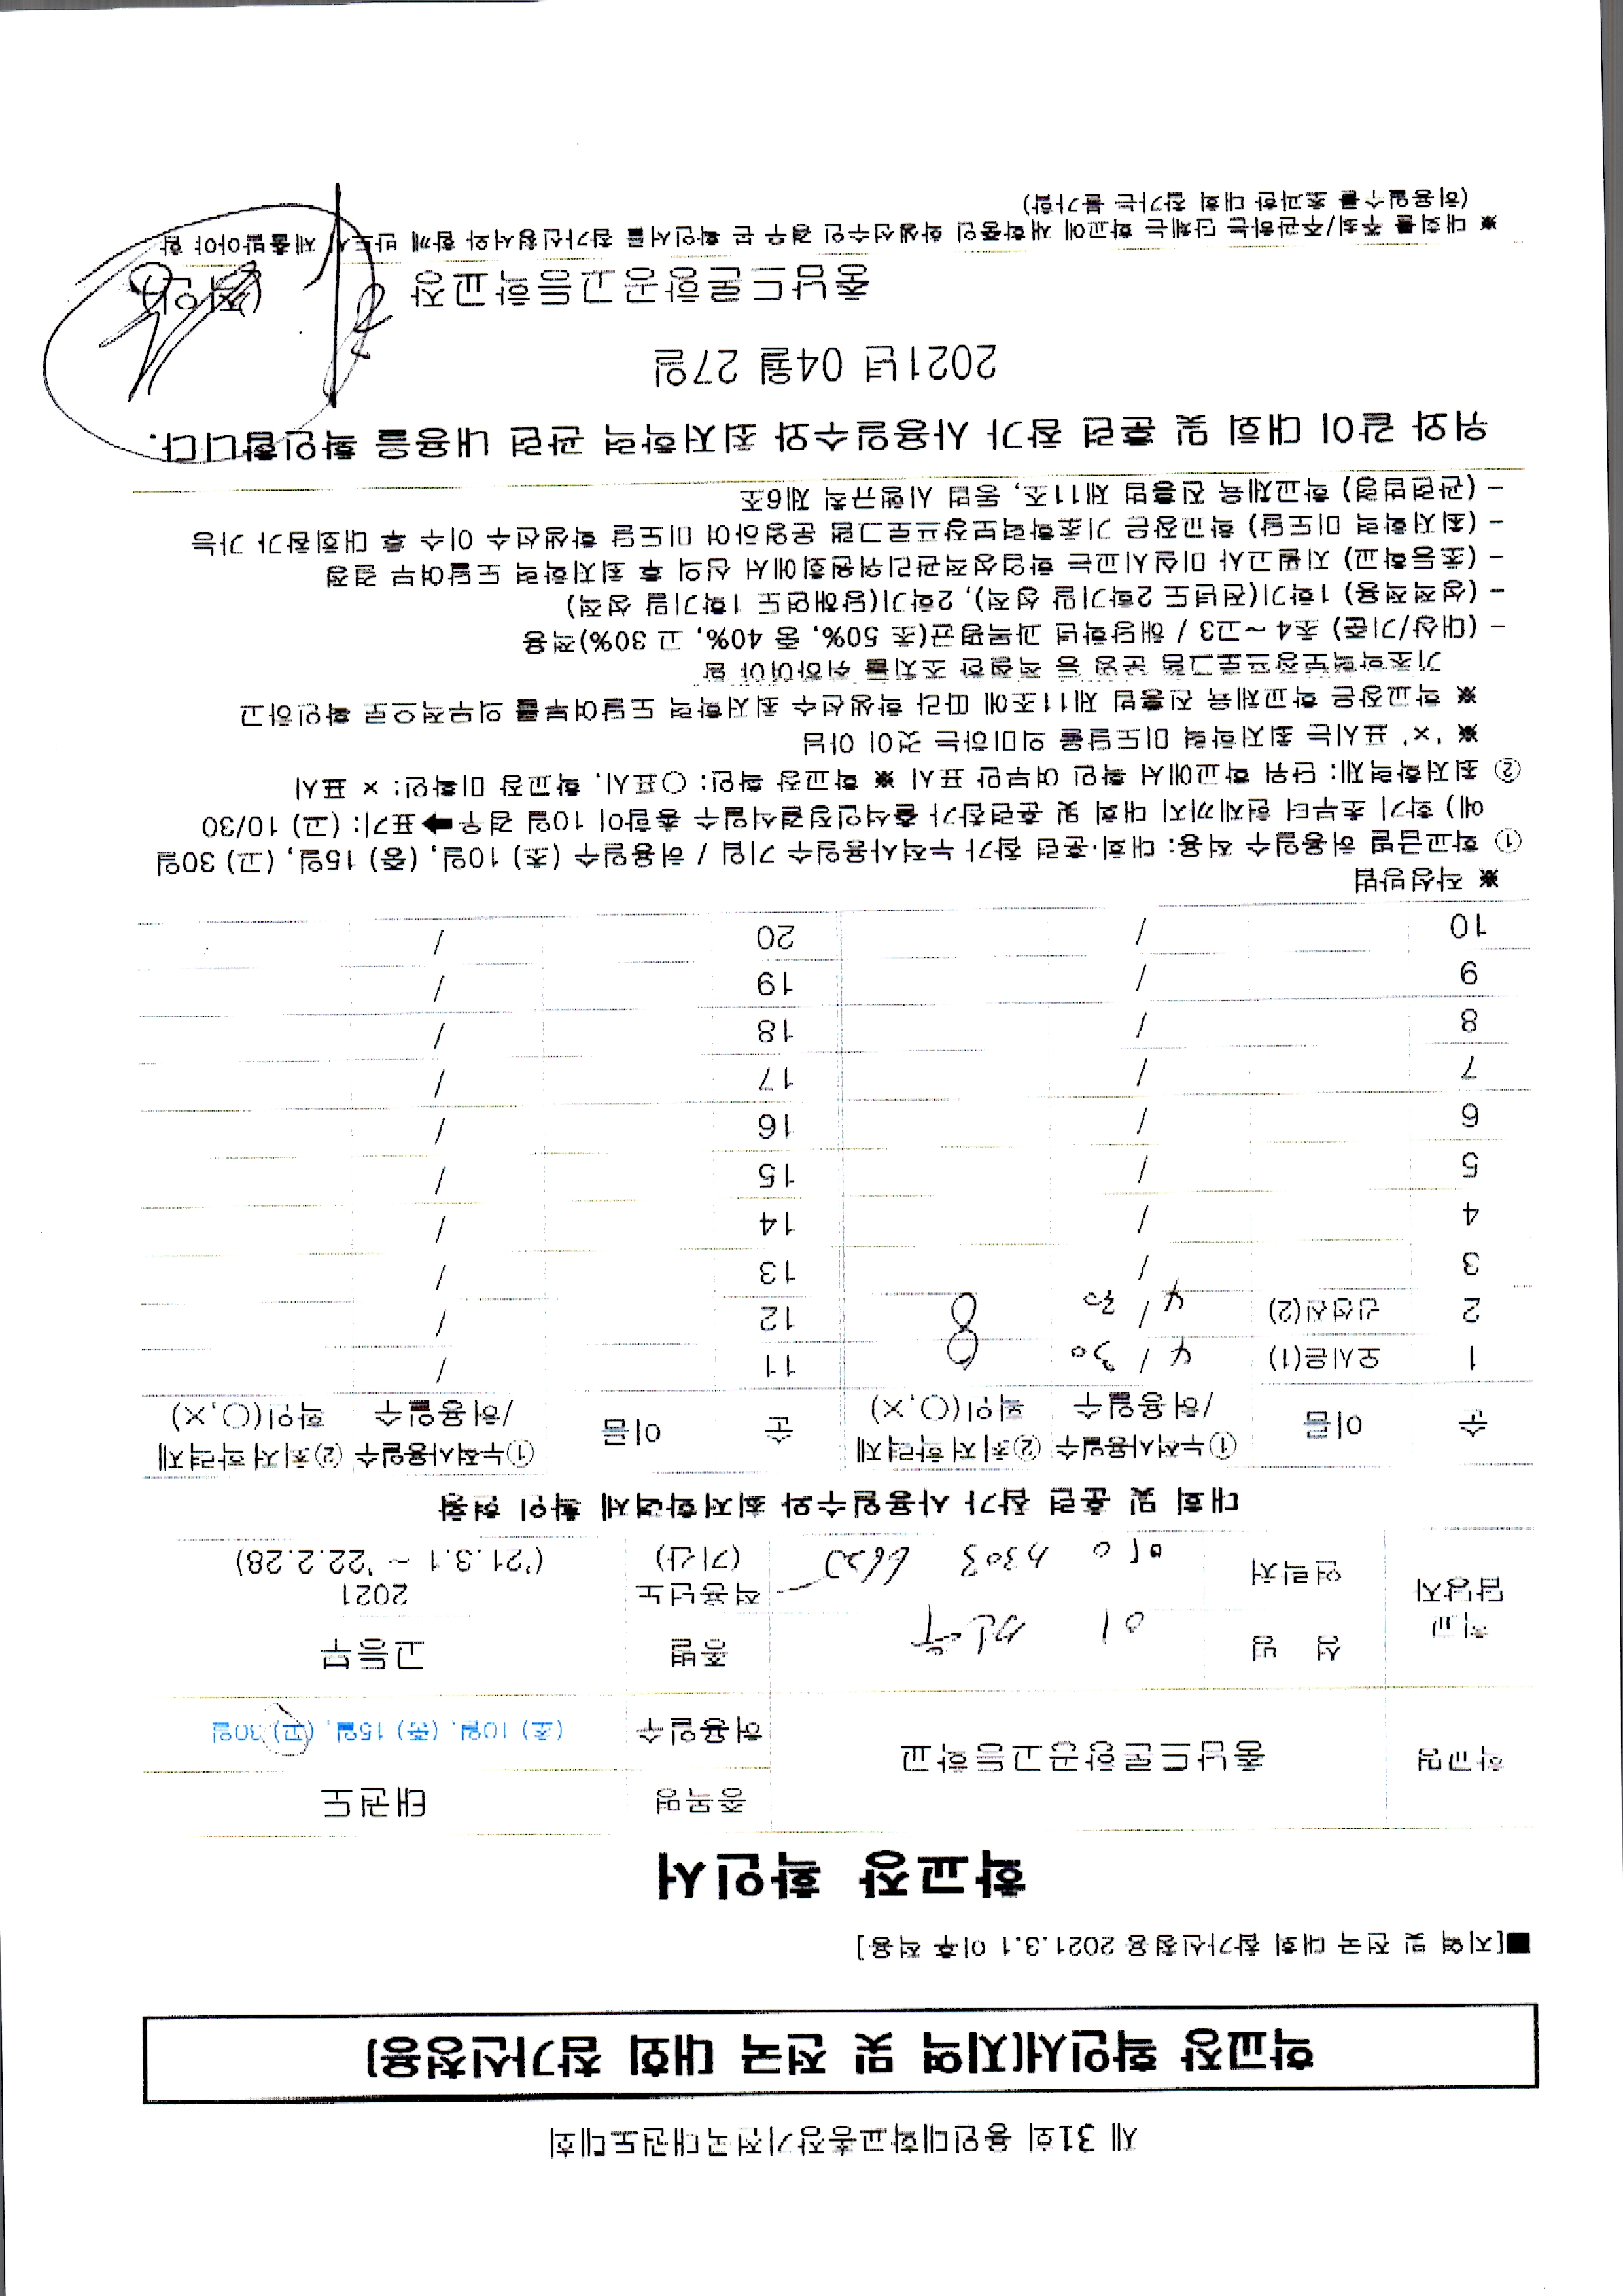 제 31회 용인대학교총장기전국태권도대회
학교장 확인서(지역 및 전국 대회 참가신청용)
■[지역 및 전국 대회 참가신청용 2021.3.1 이후 적용]
학교장 확인서
학교명 충남드론항공고등학교 종목명 태권도
허용일수 (초) 10일, (중) 15일, (고) 30일
학교 담당자 성 명 종별 고등부
연락처 적용년도 (기간) 2021 ('21.3.1 ~ '22.2.28)
대회 및 훈련 참가 사용일수와 최저학력제 확인 현황
순 이름 ①누적사용일수/허용일수 ②최저학력제 확인(○,×) 순 이름 ①누적사용일수/허용일수 ②최저학력제 확인(○,×)
1 오시은(1) 4 / 30 11 /
2 (2) 4 / 30 12 /
3 / 13 /
4 / 14 /
5 / 15 /
6 / 16 /
7 / 17 /
8 / 18 /
9 / 19 /
10 / 20 /
※ 작성방법
① 학교급별 허용일수 적용: 대회·훈련 참가 누적사용일수 기입 / 허용일수 (초) 10일, (중) 15일, (고) 30일
예) 학기 초부터 현재까지 대회 및 훈련참가 출석인정결석일수 총합이 10일 경우➡표기: (고) 10/30
② 최저학력제: 단위 학교에서 확인 여부만 표시 ※ 학교장 확인: ○표시, 학교장 미확인: × 표시
※ '×' 표시는 최저학력 미도달을 의미하는 것이 아님
※ 학교장은 학교체육 진흥법 제11조에 따라 학생선수 최저학력 도달여부를 의무적으로 확인하고
기초학력보장프로그램 운영 등 적절한 조치를 취하여야 함
- (대상/기준) 초4 ~고3 / 해당학년 과목평균(초 50%, 중 40%, 고 30%)적용
- (성적적용) 1학기(전년도 2학기말 성적), 2학기(당해연도 1학기말 성적)
- (초등학교) 지필고사 미실시교는 학업성적관리위원회에서 심의 후 최저학력 도달여부 결정
- (최저학력 미도달) 학교장은 기초학력보장프로그램 운영하여 미도달 학생선수 이수 후 대회참가 가능
- (관련법령) 학교체육 진흥법 제11조, 동법 시행규칙 제6조
위와 같이 대회 및 훈련 참가 사용일수와 최저학력 관련 내용을 확인합니다.
2021년 04월 27일
충남드론항공고등학교장 (직인)
※ 대회를 주최/주관하는 단체는 학교에 재학중인 학생선수인 경우 본 확인서를 참가신청서와 함께 반드시 제출받아야 함
(허용일수를 초과한 대회 참가는 불가함)